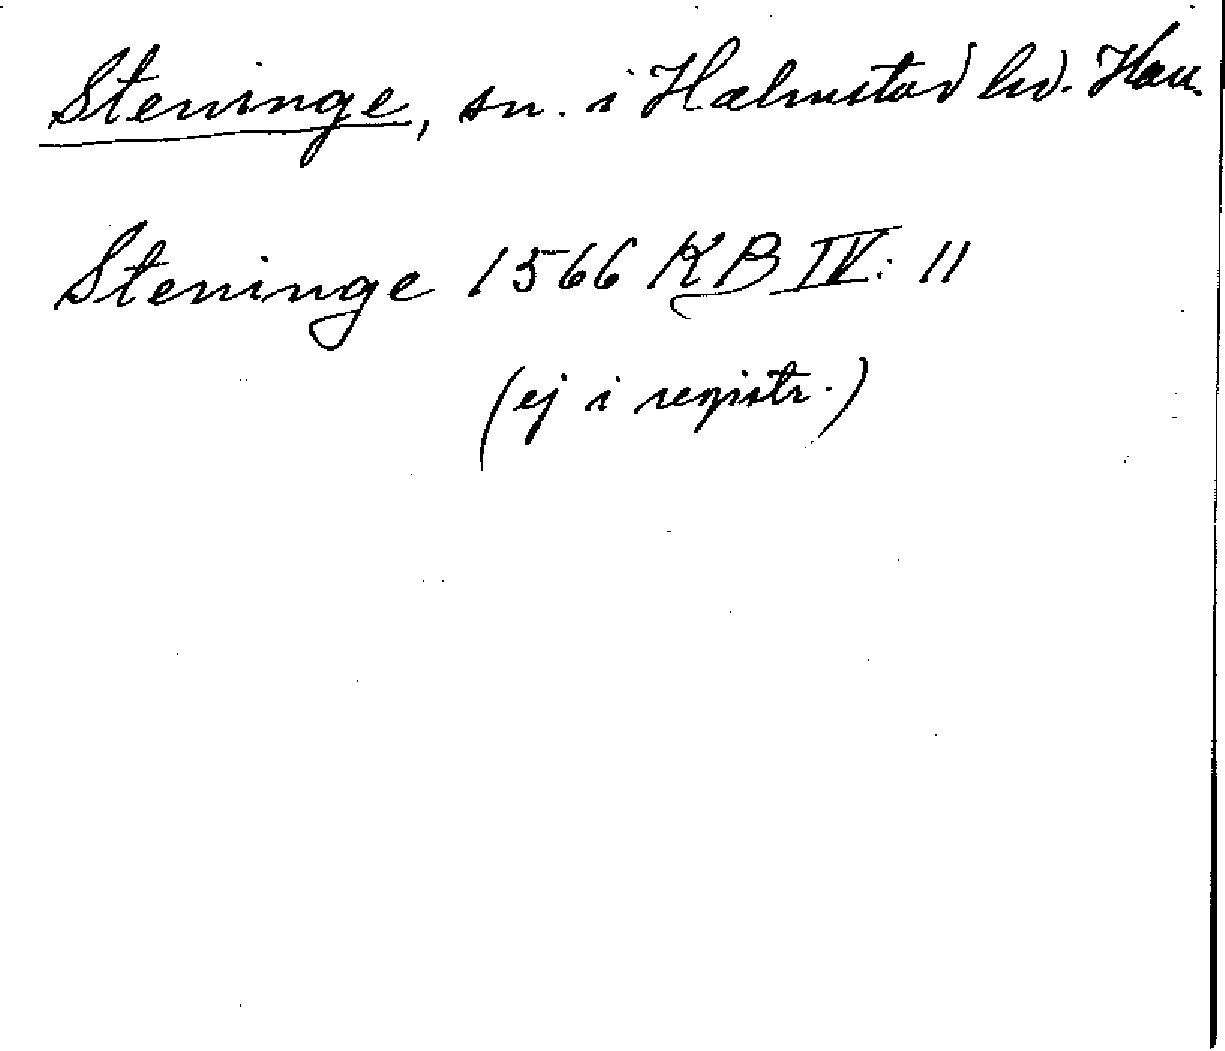 Steninge, sn. i Halmstad hd. Hall.
Steninge 1566 KB IV: 11
(ej i registr.)